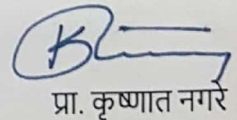 प्रा. कृष्णात नगरे